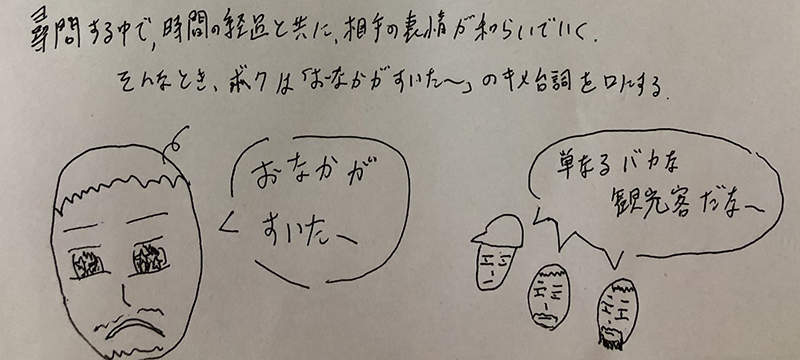 尋問する中で、時間の経過と共に、相手の表情が和らいでいく.
そんなとき、ボクは「おーなかがすいた〜」のキメ台詞を口にする.
おなかが
すいた〜
単なるバカな
観光客だな〜